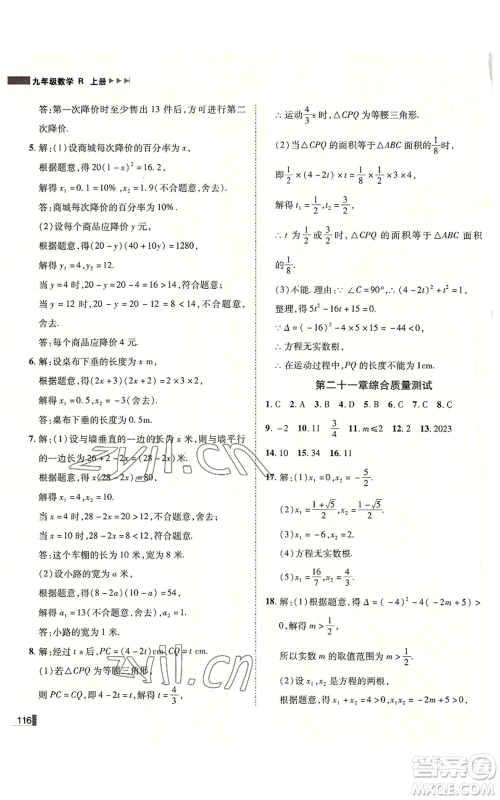 九年级数学 R 上册
答:第一次降价时至少售出 13 件后,方可进行第二
次降价.
5. 解:(1)设商城每次降价的百分率为 x,
根据题意,得 20(1-x)²=16.2,
解得 x₁=0.1=10%,x₂=1.9(不合题意,舍去).
答:商城每次降价的百分率为 10%.
(2)设每个商品应降价 y 元,
根据题意,得(20-y)(40+10y)=1280,
解得 y₁=4,y₂=12.
当 y=4 时,20-y=20-4=16>12,符合题意;
当 y=12 时,20-y=20-12=8<12,不合题意,
舍去.
答:每个商品应降价 4 元.
6. 解:设桌布下垂的长度为 x m,
根据题意,得(2x+3)(2x+2)=2×3×2,
解得 x₁=0.5,x₂=-3(不合题意,舍去).
答:桌布下垂的长度为 0.5m.
7. 解:(1)设与墙垂直的一面为 x 米,则与墙平行的
长度为 26+2-2x=(28-2x)米.
根据题意,得 x(28-2x)=80,
解得 x₁=4,x₂=10.
当 x=4 时,28-2x=20>12,不合题意,舍去;
当 x=10 时,28-2x=8<12,符合题意.
答:这个车棚的长为 10 米,宽为 8 米.
(2)设小路的宽为 a 米,
根据题意,得(8-2a)(10-a)=54,
解得 a₁=1,a₂=13(不合题意,舍去).
答:小路的宽为 1 米.
8. 解:经过 t s 后,PC=(4-2t)cm,CQ=t cm.
(1)若△CPQ 为等腰三角形,
则 PC=CQ,即 4-2t=t,解得 t=4/3,
∴运动 4/3 s 时,△CPQ 为等腰三角形.
(2)当△CPQ 的面积等于△ABC 面积的 1/8
时,即 1/2×(4-2t)×t=1/2×3×4×1/8,
解得 t₁=3/2,t₂=1/2.
∴t 为 3/2 或 1/2 时,△CPQ 的面积等于△ABC 面积的
1/8.
(3)不能.理由:∵∠C=90°,∴(4-2t)²+t²=1,
整理,得 5t²-16t+15=0.
∵Δ=(-16)²-4×5×15=-44<0,
∴方程无实数根.
∴在运动过程中,PQ 的长度不能为 1cm.
第二十一章综合质量测试
1. C 2. A 3. B 4. D 5. A 6. A 7. B 8. C
9. -2 10. 11 3/4 11. m≤2 12. 3 13. 2023
14. 10 15. 34 16. 11
17. 解:(1)x₁=2,x₂=-5/2.
(2)x₁=(1+√5)/2,x₂=(1-√5)/2.
(3)x₁=-6,x₂=-1.
(4)方程无实数根.
(5)x₁=16/7,x₂=4/3.
18. 解:(1)根据题意,得 Δ=(-4)²-4(-2m+
5)>0,解得 m>1/2,
所以实数 m 的取值范围为 m>1/2.
(2)设 x₁,x₂ 是方程的两根,
根据题意,得 x₁+x₂=4>0,x₁x₂=-2m+5>
116
zyjl.cn
zyjl.cn
答案圈
MXQE.COM